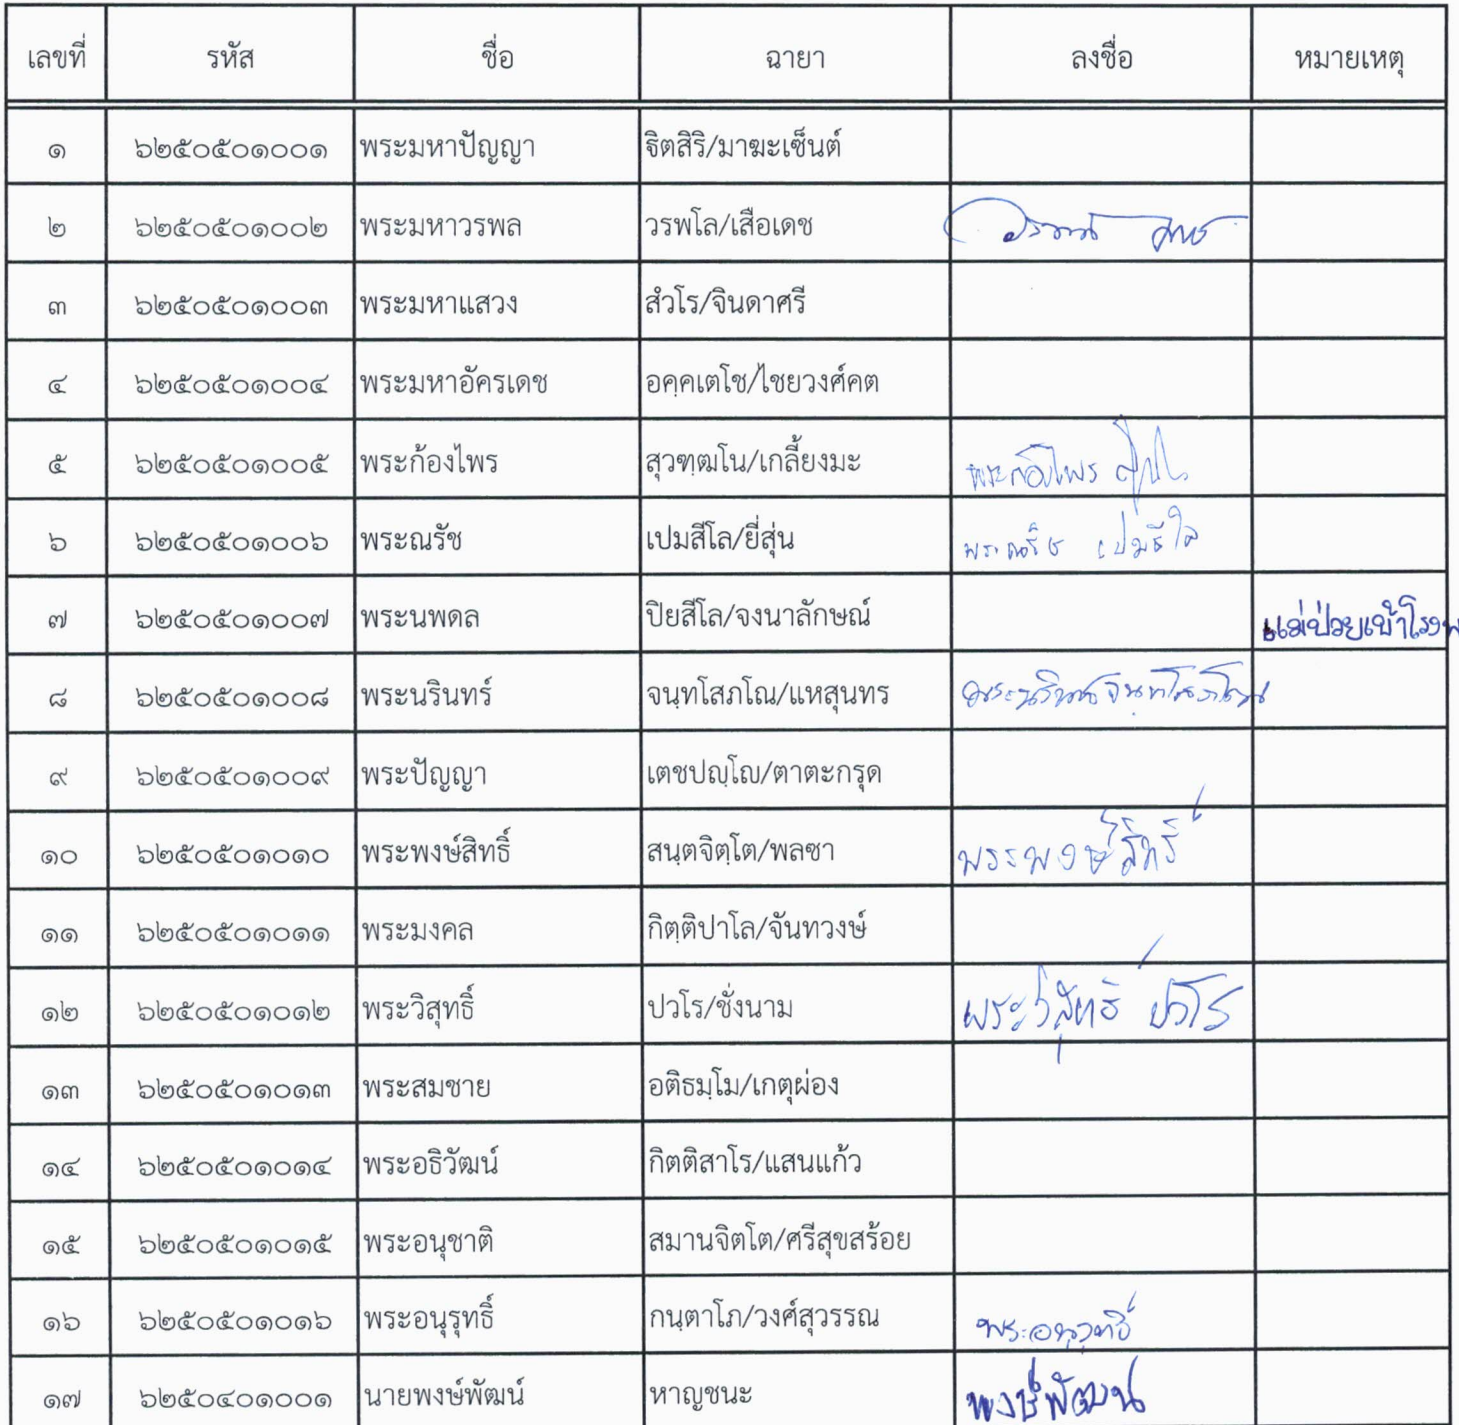 เลขที่ รหัส ชื่อ ฉายา ลงชื่อ หมายเหตุ
๑ ๖๒๕๐๕๐๑๐๐๑ พระมหาปัญญา ฐิตสิริ/มาฆะเซ็นต์
๒ ๖๒๕๐๕๐๑๐๐๒ พระมหาวรพล วรพโล/เสือเดช
๓ ๖๒๕๐๕๐๑๐๐๓ พระมหาแสวง สํวโร/จินดาศรี
๔ ๖๒๕๐๕๐๑๐๐๔ พระมหาอัครเดช อคฺคเตโช/ไชยวงศ์คต
๕ ๖๒๕๐๕๐๑๐๐๕ พระก้องไพร สุวฑฺฒโน/เกลี้ยงมะ พระก้องไพร
๖ ๖๒๕๐๕๐๑๐๐๖ พระณรัช เปมสีโล/ยี่สุ่น พระณรัช เปมสีโล
๗ ๖๒๕๐๕๐๑๐๐๗ พระนพดล ปิยสีโล/จงนาลักษณ์ แม่ป่วยเข้าโรงพ
๘ ๖๒๕๐๕๐๑๐๐๘ พระนรินทร์ จนฺทโสภโณ/แหสุนทร พระนรินทร์ จนฺทโสภโณ
๙ ๖๒๕๐๕๐๑๐๐๙ พระปัญญา เตชปญฺโญ/ตาตะกรุด
๑๐ ๖๒๕๐๕๐๑๐๑๐ พระพงษ์สิทธิ์ สนฺตจิตฺโต/พลซา พระพงษ์สิทธิ์
๑๑ ๖๒๕๐๕๐๑๐๑๑ พระมงคล กิตฺติปาโล/จันทวงษ์
๑๒ ๖๒๕๐๕๐๑๐๑๒ พระวิสุทธิ์ ปวโร/ชั่งนาม พระวิสุทธิ์ ปวโร
๑๓ ๖๒๕๐๕๐๑๐๑๓ พระสมชาย อติธมฺโม/เกตุผ่อง
๑๔ ๖๒๕๐๕๐๑๐๑๔ พระอธิวัฒน์ กิตติสาโร/แสนแก้ว
๑๕ ๖๒๕๐๕๐๑๐๑๕ พระอนุชาติ สมานจิตโต/ศรีสุขสร้อย
๑๖ ๖๒๕๐๕๐๑๐๑๖ พระอนุรุทธิ์ กนฺตาโภ/วงศ์สุวรรณ พระอนุรุทธิ์
๑๗ ๖๒๕๐๔๐๑๐๐๑ นายพงษ์พัฒน์ หาญชนะ พงษ์พัฒน์